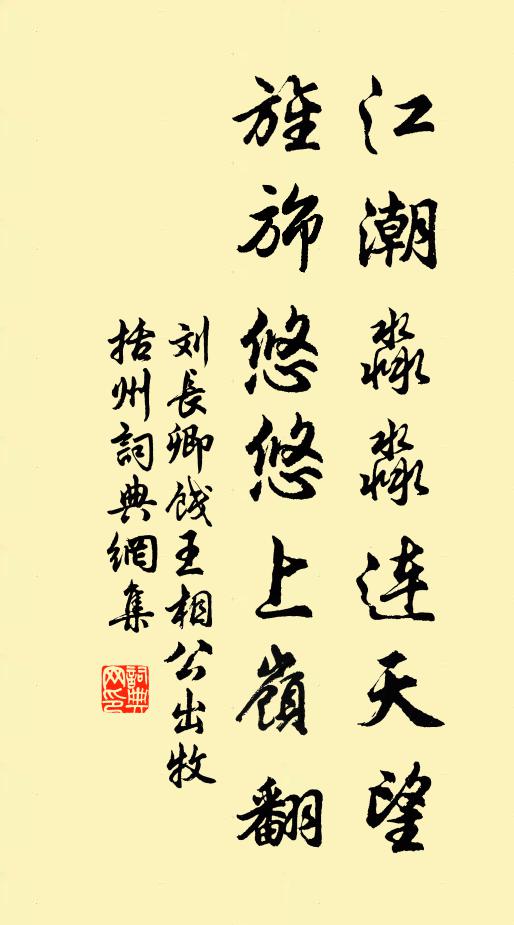 江潮淼淼连天望
旌旆悠悠上嶺翻
刘長卿餞王相公出牧
括州詞典網集
詞典网印